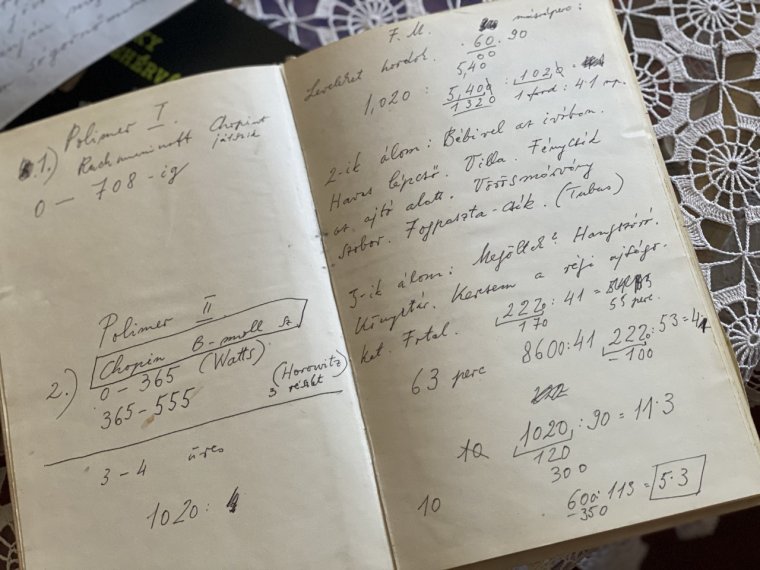 KY
HÉRVÁ
1.) Polimer I.
Rachmaninoff Chopint
játszik
0 – 708 -ig
Polimer II
2.) Chopin B-moll sz
0 – 365 (Watts)
365 – 555 (Horowitz
3 részt
3 – 4 üres
1020:
F. M. másodperc:
Leveleket hordok. 60. 90
00
5,40
1,020 : 5,400 : 1020
1320 1 ford: 4.1 mp.
2-ik álom: Bébivel az ivóban.
Havas lépcső. Villa. Fénycsík
az ajtó alatt. Vörösmárvány
szobor. Fogpaszta-csík. (Tubus)
3-ik álom: Megöltek? Hangszóró.
Könyvtár. Keresem a régi ujságo-
kat. Fertal. 2220 : 41 =
170 55 perc.
63 perc 8600:41 2220:53=41
–100
10 1020 : 90 = 11.3
120
300
10 600:113 = 5.3
–350